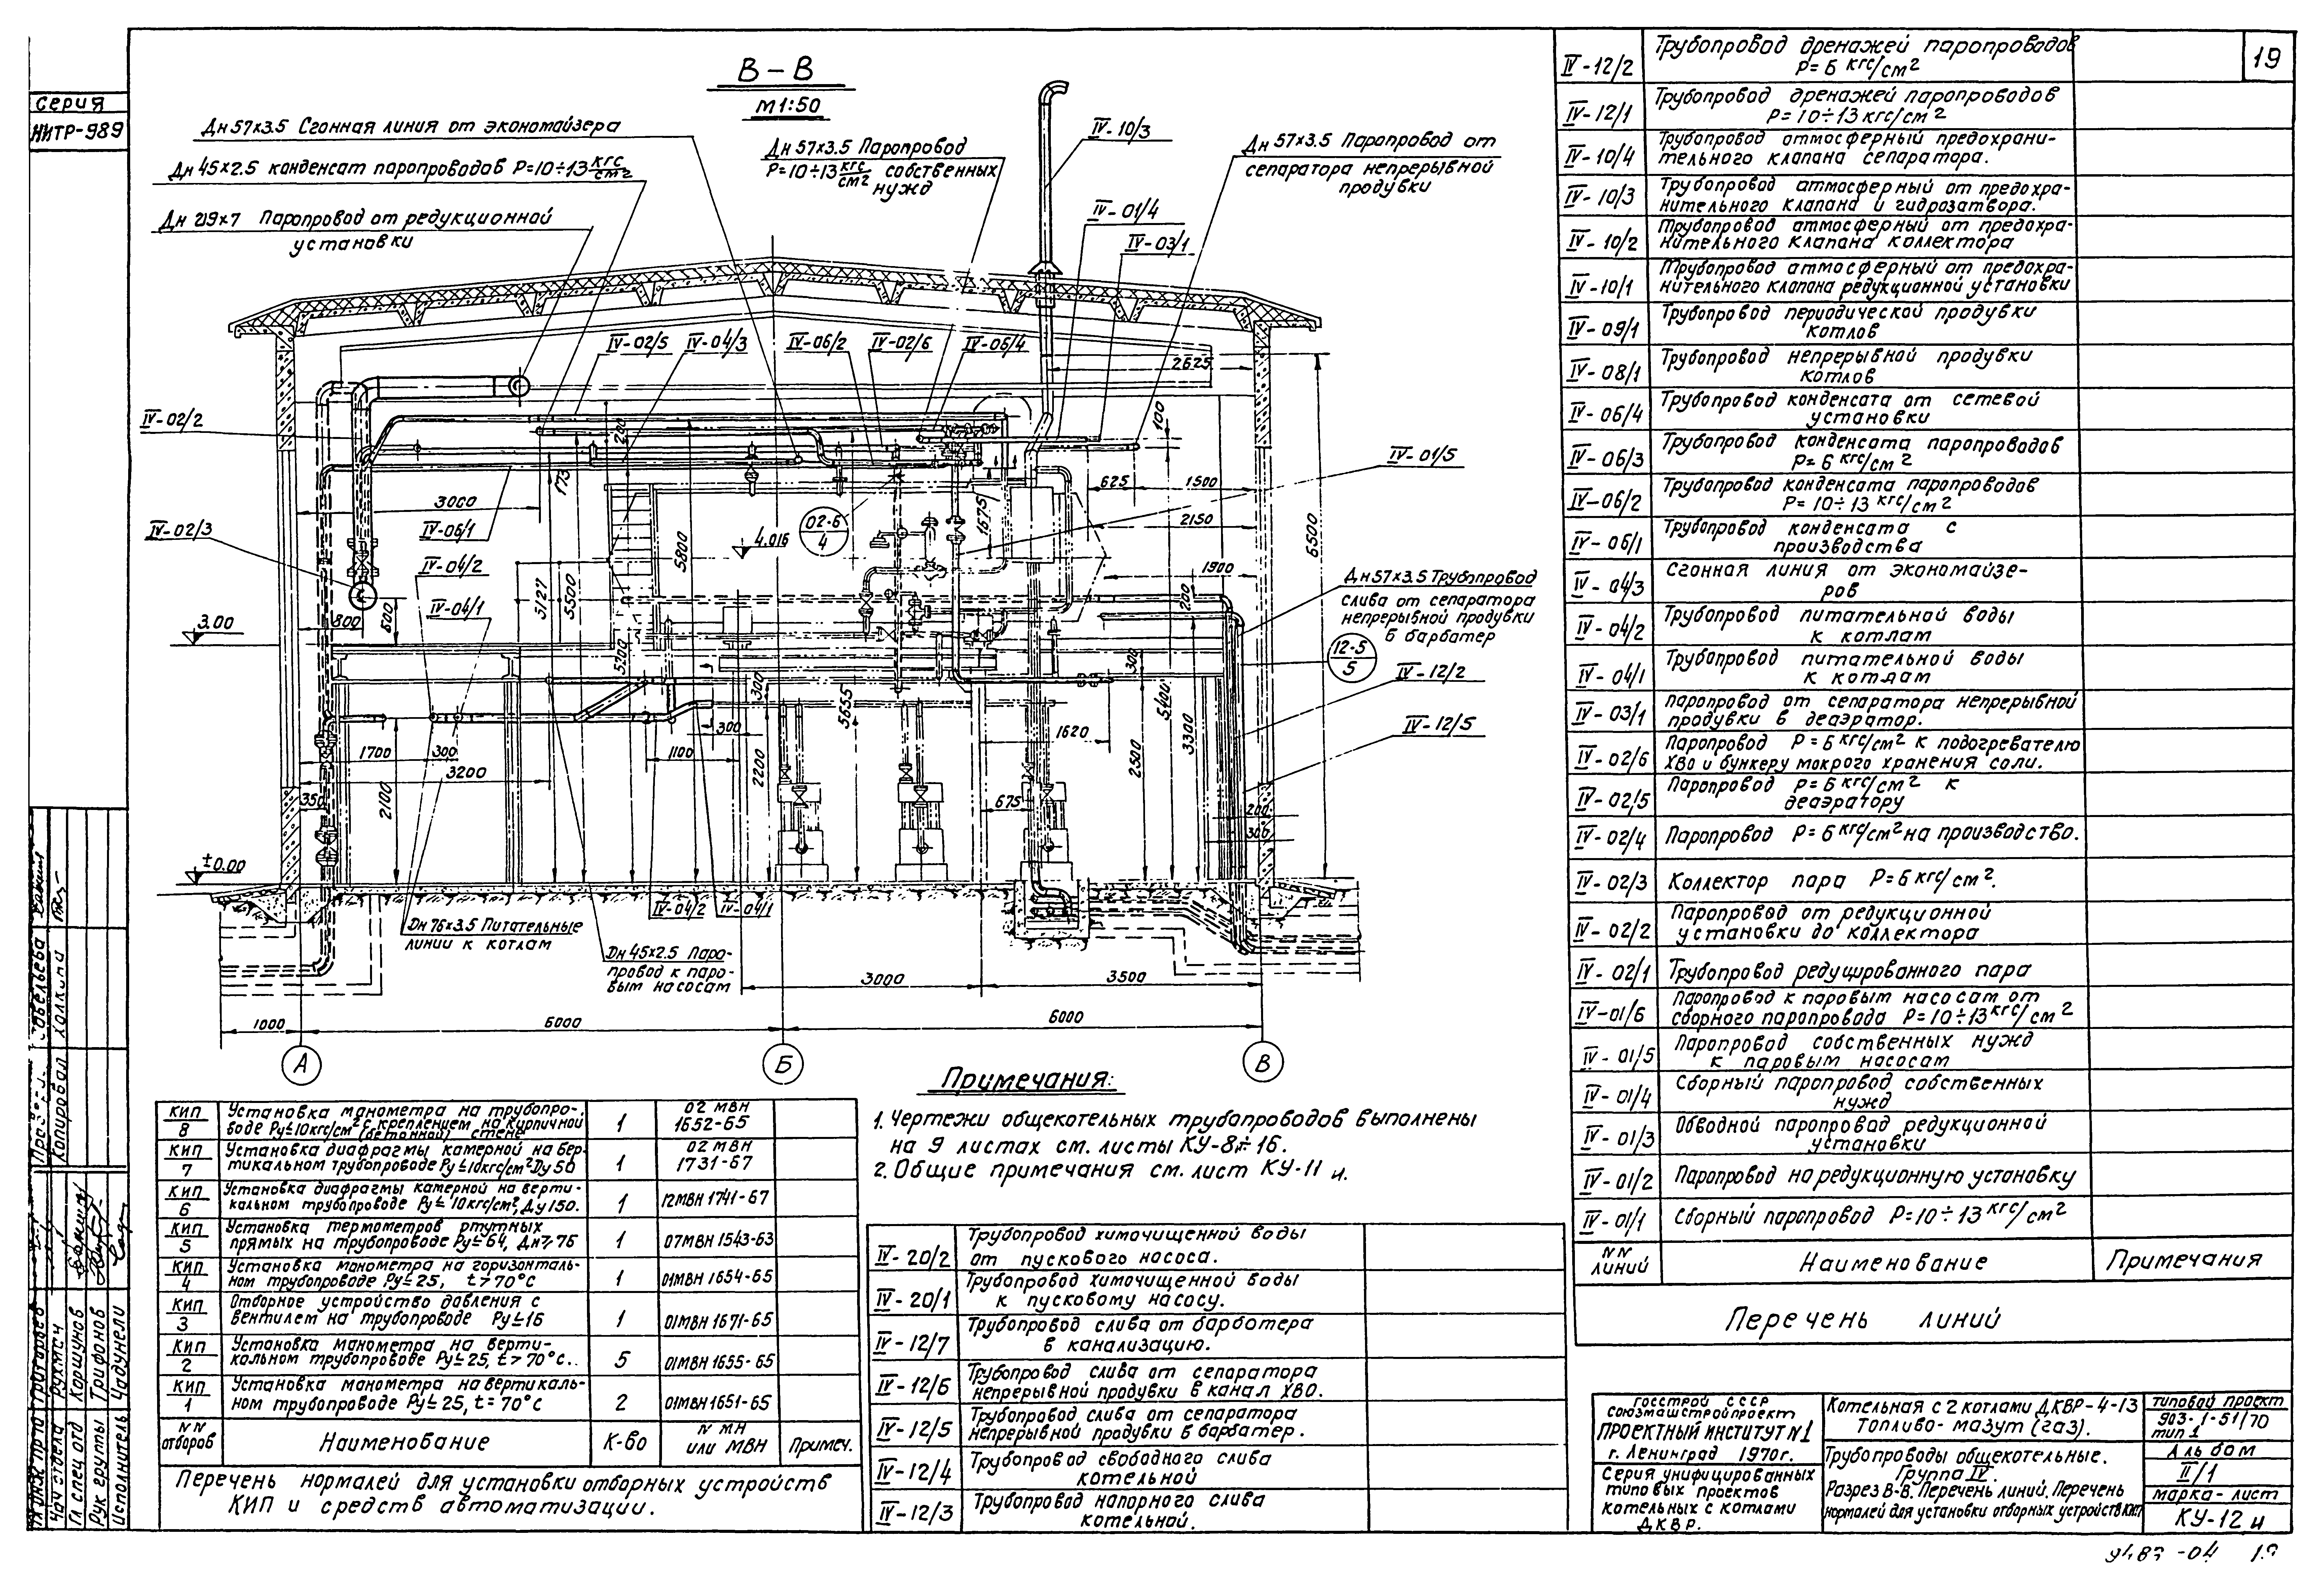 19
Серия
НИТР-989
В-В
М1:50
Дн57х3.5 Сгонная линия от экономайзера
Дн45х2.5 конденсат паропроводов Р=10÷13 кгс/см²
Дн 219х7 Паропровод от редукционной
установки
Дн57х3.5 Паропровод
Р=10÷13 кгс/см² собственных
нужд
IV-10/3
Дн57х3.5 Паропровод от
сепаратора непрерывной
продувки
IV-01/4
IV-03/1
IV-02/5
IV-04/3
IV-06/2
IV-02/6
IV-06/4
2625
IV-02/2
200
100
IV-01/5
173
3000
625
1500
IV-02/3
IV-06/1
02-6
4
4.016
1675
2150
6500
5800
IV-04/2
5127
5500
1900
Дн57х3.5 Трубопровод
слива от сепаратора
непрерывной продувки
в барбатер
IV-04/1
200
3.00
800
600
12-5
5
5200
300
300
IV-12/2
5655
5400
3300
IV-12/5
1700
300
300
1620
3200
1100
2200
2500
350
2100
675
200
300
±0.00
IV-04/2
IV-04/1
Дн76х3.5 Питательные
линии к котлам
Дн45х2.5 Паро-
провод к паро-
вым насосам
3000
3500
1000
6000
6000
А
Б
В
Примечания:
1. Чертежи общекотельных трубопроводов выполнены
на 9 листах см. листы КУ-8÷16.
2. Общие примечания см. лист КУ-11 и.
КИП 8 Установка манометра на трубопро-
воде Ру≤10кгс/см² с креплением на кирпичной
(бетонной) стене 1 02 МВН 1652-65
КИП 7 Установка диафрагмы камерной на вер-
тикальном трубопроводе Ру≤10кгс/см² Ду 50 1 02 МВН 1731-67
КИП 6 Установка диафрагмы камерной на верти-
кальном трубопроводе Ру≤10кгс/см², Ду 150. 1 12МВН 1741-67
КИП 5 Установка термометров ртутных
прямых на трубопроводе Ру≤64, Дн≥76 1 07МВН 1543-63
КИП 4 Установка манометра на горизонталь-
ном трубопроводе Ру≤25, t>70°с 1 01МВН 1654-65
КИП 3 Отборное устройство давления с
вентилем на трубопроводе Ру≤16 1 01МВН 1671-65
КИП 2 Установка манометра на верти-
кальном трубопроводе Ру≤25, t>70°с.. 5 01МВН 1655-65
КИП 1 Установка манометра на вертикаль-
ном трубопроводе Ру≤25, t=70°с 2 01МВН 1651-65
NN отборов Наименование К-во N МН или МВН Примеч.
Перечень нормалей для установки отборных устройств
КИП и средств автоматизации.
IV-20/2 Трубопровод химочищенной воды
от пускового насоса.
IV-20/1 Трубопровод химочищенной воды
к пусковому насосу.
IV-12/7 Трубопровод слива от барбатера
в канализацию.
IV-12/6 Трубопровод слива от сепаратора
непрерывной продувки в канал ХВО.
IV-12/5 Трубопровод слива от сепаратора
непрерывной продувки в барбатер.
IV-12/4 Трубопровод свободного слива
котельной
IV-12/3 Трубопровод напорного слива
котельной.
IV-12/2 Трубопровод дренажей паропроводов
Р=6 кгс/см²
IV-12/1 Трубопровод дренажей паропроводов
Р=10÷13 кгс/см²
IV-10/4 Трубопровод атмосферный предохрани-
тельного клапана сепаратора.
IV-10/3 Трубопровод атмосферный от предохра-
нительного клапана и гидрозатвора.
IV-10/2 Трубопровод атмосферный от предохра-
нительного клапана коллектора
IV-10/1 Трубопровод атмосферный от предохра-
нительного клапана редукционной установки
IV-09/1 Трубопровод периодической продувки
котлов
IV-08/1 Трубопровод непрерывной продувки
котлов
IV-06/4 Трубопровод конденсата от сетевой
установки
IV-06/3 Трубопровод конденсата паропроводов
Р=6 кгс/см²
IV-06/2 Трубопровод конденсата паропроводов
Р=10÷13 кгс/см²
IV-06/1 Трубопровод конденсата с
производства
IV-04/3 Сгонная линия от экономайзе-
ров
IV-04/2 Трубопровод питательной воды
к котлам
IV-04/1 Трубопровод питательной воды
к котлам
IV-03/1 Паропровод от сепаратора непрерывной
продувки в деаэратор.
IV-02/6 Паропровод Р=6 кгс/см² к подогревателю
ХВО и бункеру мокрого хранения соли.
IV-02/5 Паропровод Р=6 кгс/см² к
деаэратору
IV-02/4 Паропровод Р=6 кгс/см² на производство.
IV-02/3 Коллектор пара Р=6 кгс/см².
IV-02/2 Паропровод от редукционной
установки до коллектора
IV-02/1 Трубопровод редуцированного пара
IV-01/6 Паропровод к паровым насосам от
сборного паропровода Р=10÷13 кгс/см²
IV-01/5 Паропровод собственных нужд
к паровым насосам
IV-01/4 Сборный паропровод собственных
нужд
IV-01/3 Обводной паропровод редукционной
установки
IV-01/2 Паропровод на редукционную установку
IV-01/1 Сборный паропровод Р=10÷13 кгс/см²
NN линий Наименование Примечания
Перечень линий
Госстрой СССР
Союзмашстройпроект
ПРОЕКТНЫЙ ИНСТИТУТ N1
г. Ленинград 1970г.
Серия унифицированных
типовых проектов
котельных с котлами
ДКВР.
Котельная с 2 котлами ДКВР-4-13
Топливо-мазут (газ).
Трубопроводы общекотельные.
Группа IV.
Разрез В-В. Перечень линий. Перечень
нормалей для установки отборных устройств КИП
типовой проект
903-1-51/70
тип 1
Альбом
II/1
марка-лист
КУ-12 и
Нач отдела Рухман
Гл спец отд Коршунов
Рук группы Трифонов
Исполнитель Чадунели
Копировал Халкина